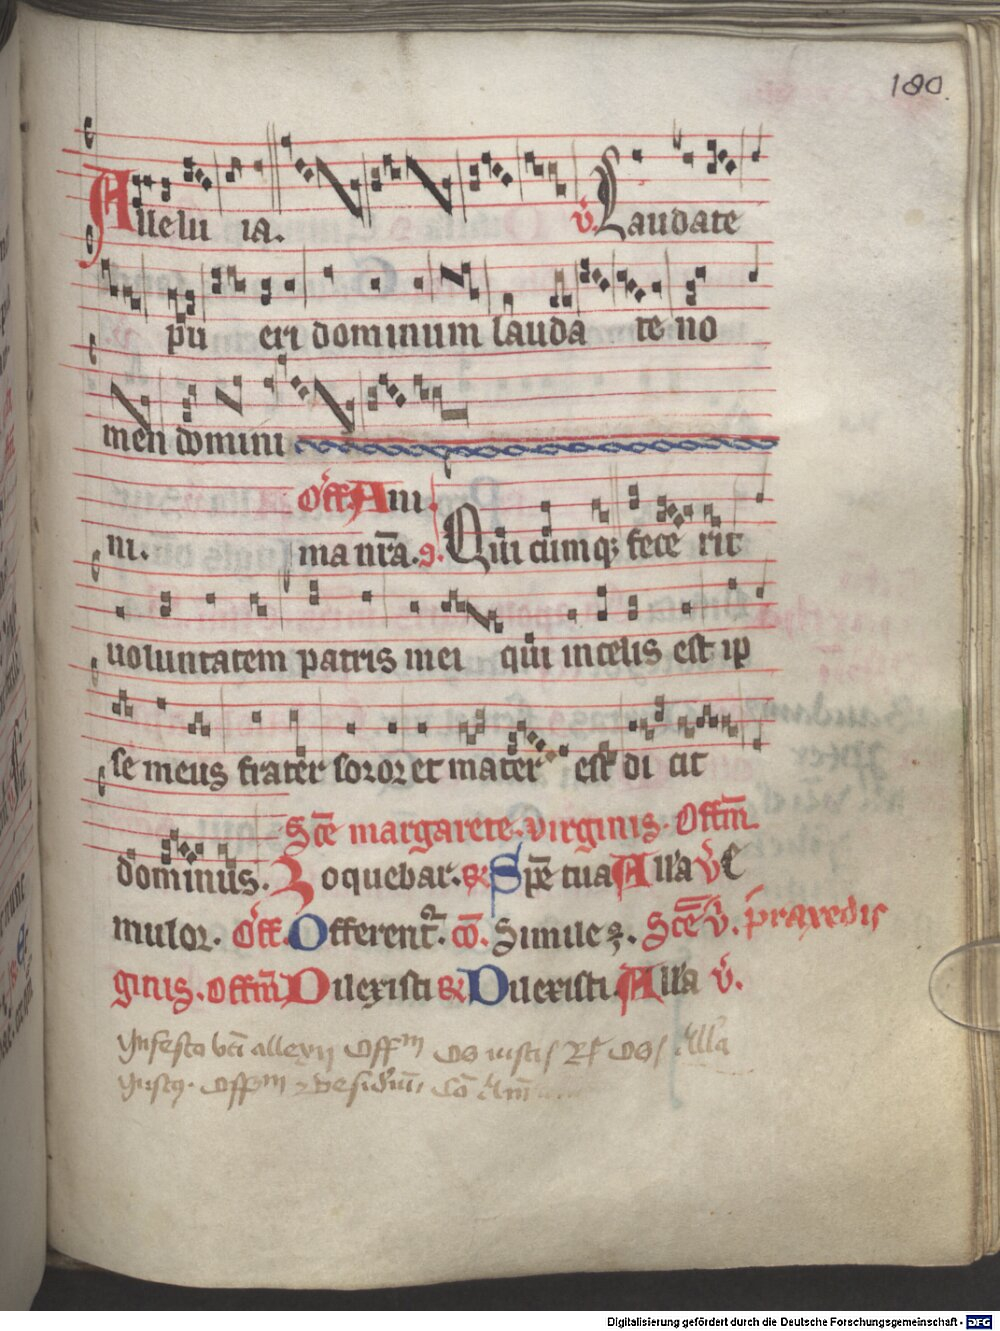 180
Allelu ia. v̾. Laudate
pu eri dominum lauda te no
men domini
Off. Ani
ni. ma nr̄a. 9. Qui cumq; fece rit
uoluntatem patris mei qui in celis est ip
se meus frater soror et mater est di cit
Sc̄e margarete. virginis. Offm̄
dominus. Loquebar. R̄ Spē tua All'a v̾
mulor. Off. Offerent᷑. cō. Simile ē. Sc̄e v̾. praxedis
ginis. Offm̄ Dilexisti R̄ Dilexisti. All'a v̾.
In festo bt̄i allexii Offm Os iusti R̄ Os All'a
Iustus. Offm Desideriū Cō Am̄
Digitalisierung gefördert durch die Deutsche Forschungsgemeinschaft - DFG